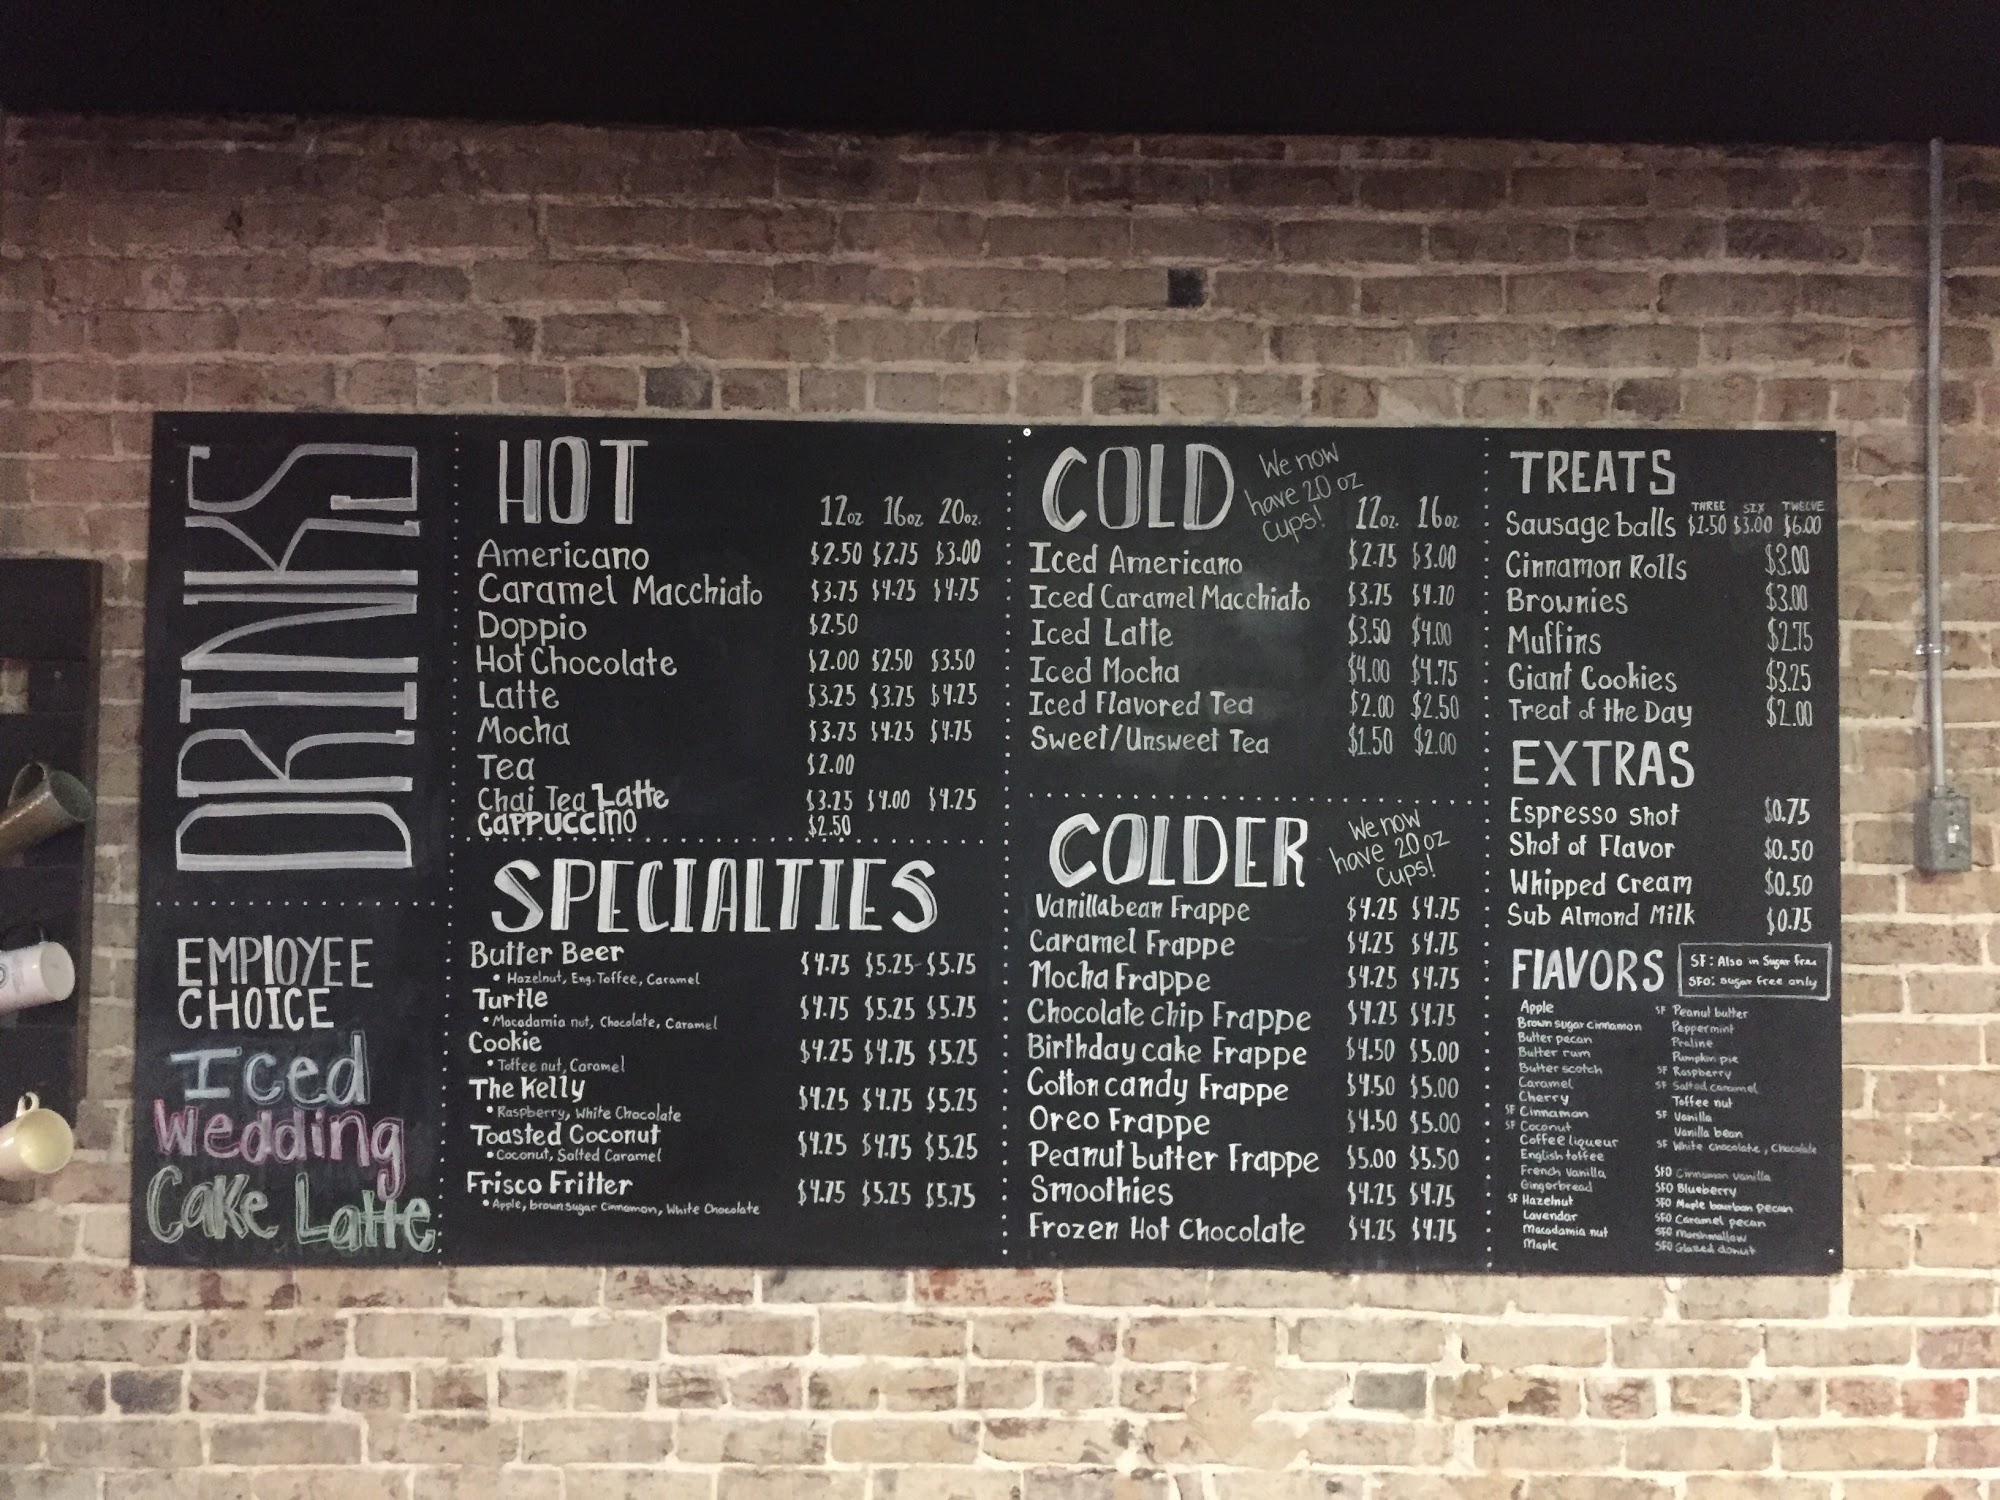 DRINKS
EMPLOYEE
CHOICE
Iced
Wedding
Cake Latte
HOT
12oz 16oz 20oz.
Americano $2.50 $2.75 $3.00
Caramel Macchiato $3.75 $4.25 $4.75
Doppio $2.50
Hot Chocolate $2.00 $2.50 $3.50
Latte $3.25 $3.75 $4.25
Mocha $3.75 $4.25 $4.75
Tea $2.00
Chai Tea Latte $3.25 $4.00 $4.25
CAPPUCCINO $2.50
SPECIALTIES
Butter Beer $4.75 $5.25 $5.75
• Hazelnut, Eng. Toffee, Caramel
Turtle $4.75 $5.25 $5.75
• Macadamia nut, Chocolate, Caramel
Cookie $4.25 $4.75 $5.25
• Toffee nut, Caramel
The Kelly $4.25 $4.75 $5.25
• Raspberry, White Chocolate
Toasted Coconut $4.25 $4.75 $5.25
• Coconut, Salted Caramel
Frisco Fritter $4.75 $5.25 $5.75
• Apple, brown sugar Cinnamon, White Chocolate
COLD
We now
have 20 oz
cups!
12oz. 16oz
Iced Americano $2.75 $3.00
Iced Caramel Macchiato $3.75 $4.10
Iced Latte $3.50 $4.00
Iced Mocha $4.00 $4.75
Iced Flavored Tea $2.00 $2.50
Sweet/Unsweet Tea $1.50 $2.00
COLDER
We now
have 20 oz
cups!
Vanillabean Frappe $4.25 $4.75
Caramel Frappe $4.25 $4.75
Mocha Frappe $4.25 $4.75
Chocolate chip Frappe $4.25 $4.75
Birthday cake Frappe $4.50 $5.00
Cotton candy Frappe $4.50 $5.00
Oreo Frappe $4.50 $5.00
Peanut butter Frappe $5.00 $5.50
Smoothies $4.25 $4.75
Frozen Hot Chocolate $4.25 $4.75
TREATS
THREE SIX TWELVE
Sausage balls $1.50 $3.00 $6.00
Cinnamon Rolls $3.00
Brownies $3.00
Muffins $2.75
Giant Cookies $3.25
Treat of the Day $2.00
EXTRAS
Espresso shot $0.75
Shot of Flavor $0.50
Whipped Cream $0.50
Sub Almond Milk $0.75
FLAVORS
SF: Also in Sugar free
SFO: sugar free only
Apple
Brown sugar cinnamon
Butter pecan
Butter rum
Butter scotch
Caramel
Cherry
SF Cinnamon
SF Coconut
Coffee liqueur
English toffee
French Vanilla
Gingerbread
SF Hazelnut
Lavendar
Macadamia nut
Maple
SF Peanut butter
Peppermint
Praline
Pumpkin pie
SF Raspberry
SF Salted caramel
Toffee nut
SF Vanilla
Vanilla bean
SF White chocolate, Chocolate
SFO Cinnamon vanilla
SFO Blueberry
SFO Maple bourbon pecan
SFO Caramel pecan
SFO Marshmallow
SFO Glazed donut